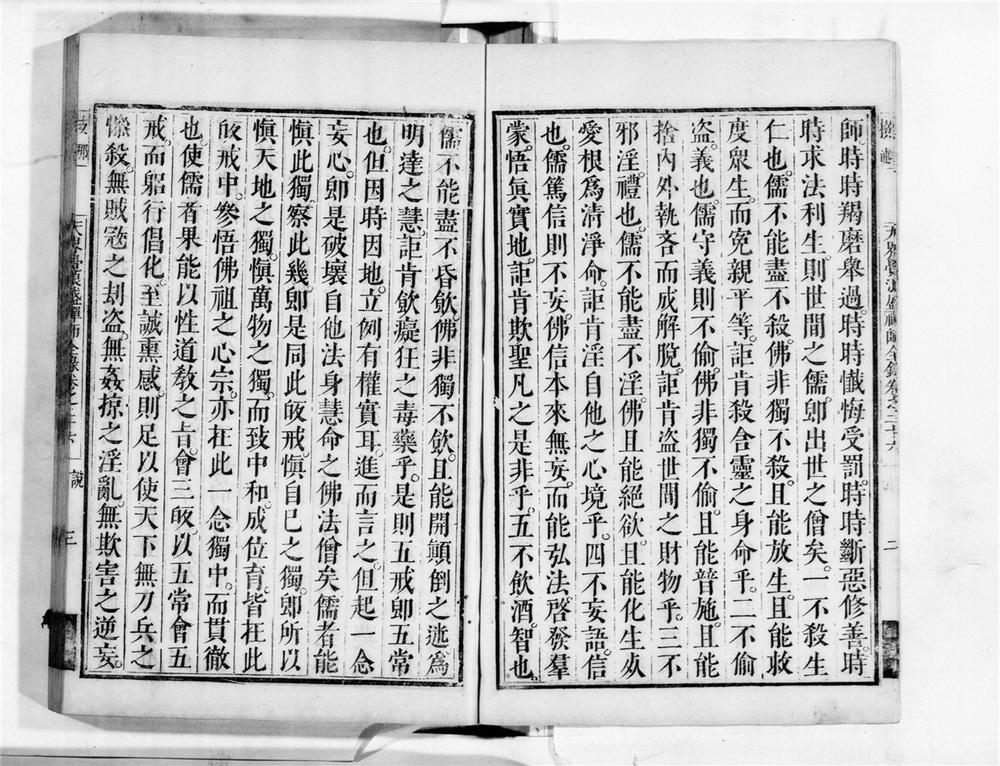 師時時羯磨舉過時時懺悔受罰時時斷惡修善時
時求法利生則世間之儒卽出世之僧矣一不殺生
仁也儒不能盡不殺佛非獨不殺且能放生且能救
度衆生而寃親平等詎肯殺含靈之身命乎二不偷
盜義也儒守義則不偷佛非獨不偷且能普施且能
捨內外執吝而成解脫詎肯盜世間之財物乎三不
邪淫禮也儒不能盡不淫佛且能絕欲且能化生死
愛根爲清淨命詎肯淫自他之心境乎四不妄語信
也儒篤信則不妄佛信本來無妄而能弘法啓發羣
蒙悟眞實地詎肯欺聖凡之是非乎五不飲酒智也
二
儒不能盡不昏飲佛非獨不飲且能開顚倒之迷爲
明達之慧詎肯飲癡狂之毒藥乎是則五戒卽五常
也但因時因地立例有權實耳進而言之但起一念
妄心卽是破壞自他法身慧命之佛法僧矣儒者能
愼此獨察此幾卽是同此皈戒愼自己之獨卽所以
愼天地之獨愼萬物之獨而致中和成位育皆在此
皈戒中參悟佛祖之心宗亦在此一念獨中而貫徹
也使儒者果能以性道敎之旨會三皈以五常會五
戒而躬行倡化至誠熏感則足以使天下無刀兵之
慘殺無賊寇之刦盜無姦掠之淫亂無欺害之逆妄
天界覺浪盛禪師全錄卷之二十六 說 三